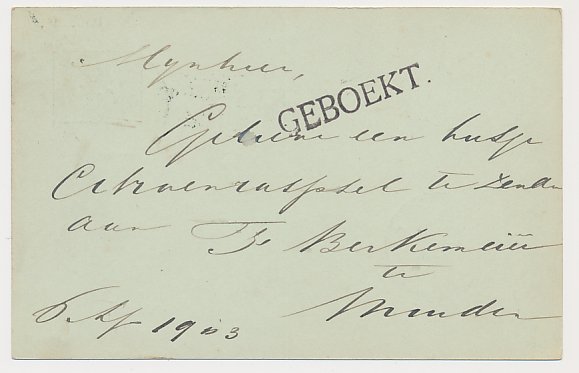 Mynheer,
GEBOEKT.
Gelieve een kistje
Citroenraspsel te zenden
aan Berkemeier
te
1903